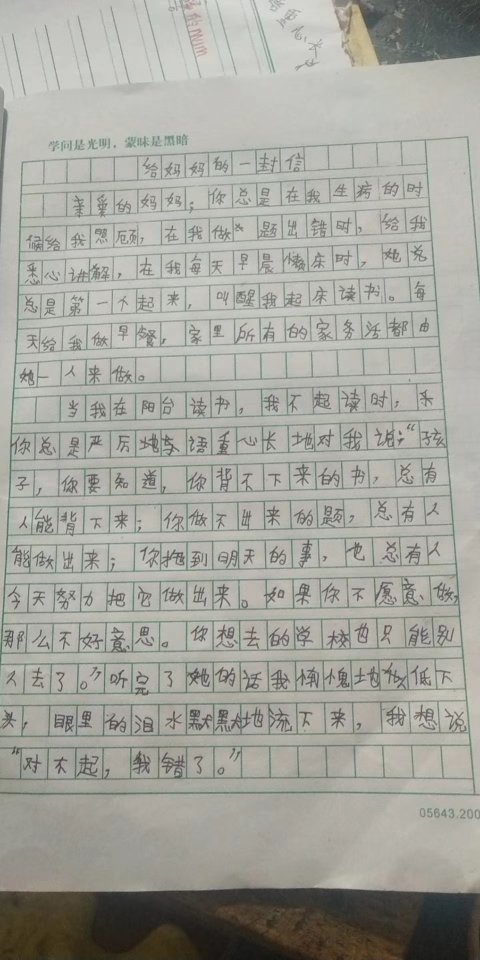 学问是光明，蒙昧是黑暗
给妈妈的一封信
亲爱的妈妈；你总是在我生病的时
候给我照顾，在我做 题出错时，给我
悉心讲解，在我每天早晨懒床时，她总
总是第一个起来，叫醒我起床读书。每
天给我做早餐，家里所有的家务活都由
她一人来做。
当我在阳台读书，我不想读时，
你总是严厉地 语重心长地对我说；“孩
子，你要知道，你背不下来的书，总有
人能背下来；你做不出来的题，总有人
能做出来；你拖到明天的事，也总有人
今天努力把它做出来。如果你不愿意做，
那么不好意思。你想去的学校也只能别
人去了。”听完了她的话我惭愧地 低下
头，眼里的泪水默默地流下来，我想说
“对不起，我错了。”
05643.200